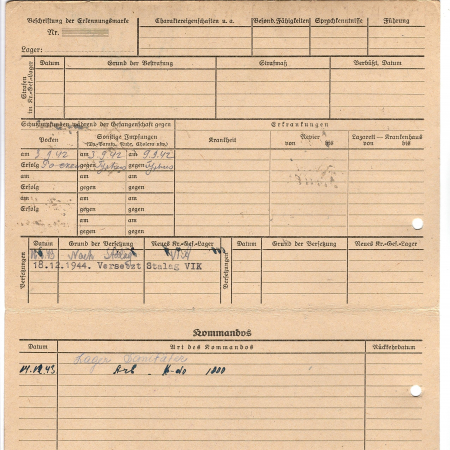 Beschriftung der Erkennungsmarke
Nr.
Lager:
Charaktereigenschaften u. a.
Besond. Fähigkeiten
Sprachkenntnisse
Führung
Strafen im Kr.-Gef.-Lager
Datum
Grund der Bestrafung
Strafmaß
Verbüßt, Datum
Schutzimpfungen während der Gefangenschaft gegen
Erkrankungen
Pocken
Sonstige Impfungen
(Ty.-Paraty., Ruhr, Cholera usw.)
Krankheit
Revier
von bis
Lazarett - Krankenhaus
von bis
am 3.9.42 am 3.9.42 am 9.9.42
Erfolg gegen gegen
am am am
Erfolg gegen gegen
am am am
Erfolg gegen gegen
am am
gegen gegen
Versetzungen
Datum
Grund der Versetzung
Neues Kr.-Gef.-Lager
Versetzungen
Datum
Grund der Versetzung
Neues Kr.-Gef.-Lager
Nach Stalag VI A
18.12.1944. Versetzt Stalag VIK
Kommandos
Datum
Art des Kommandos
Rückkehrdatum
Lager
Arb. K-do 1000